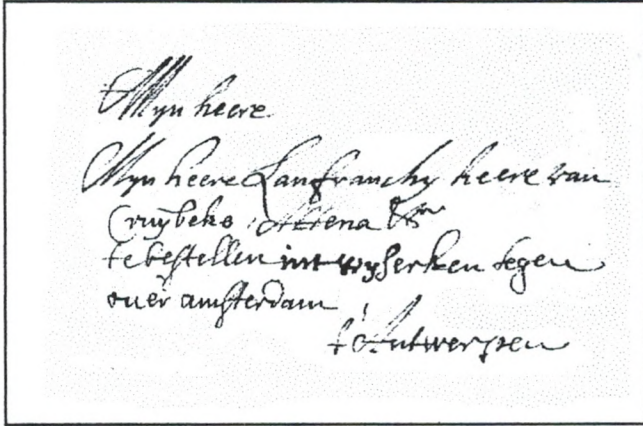 Myn heere
Myn heere Lanfranchy heere van
Cruybeke Altena &
te bestellen int wyserken tegen
over amsterdam
t'Antwerpen